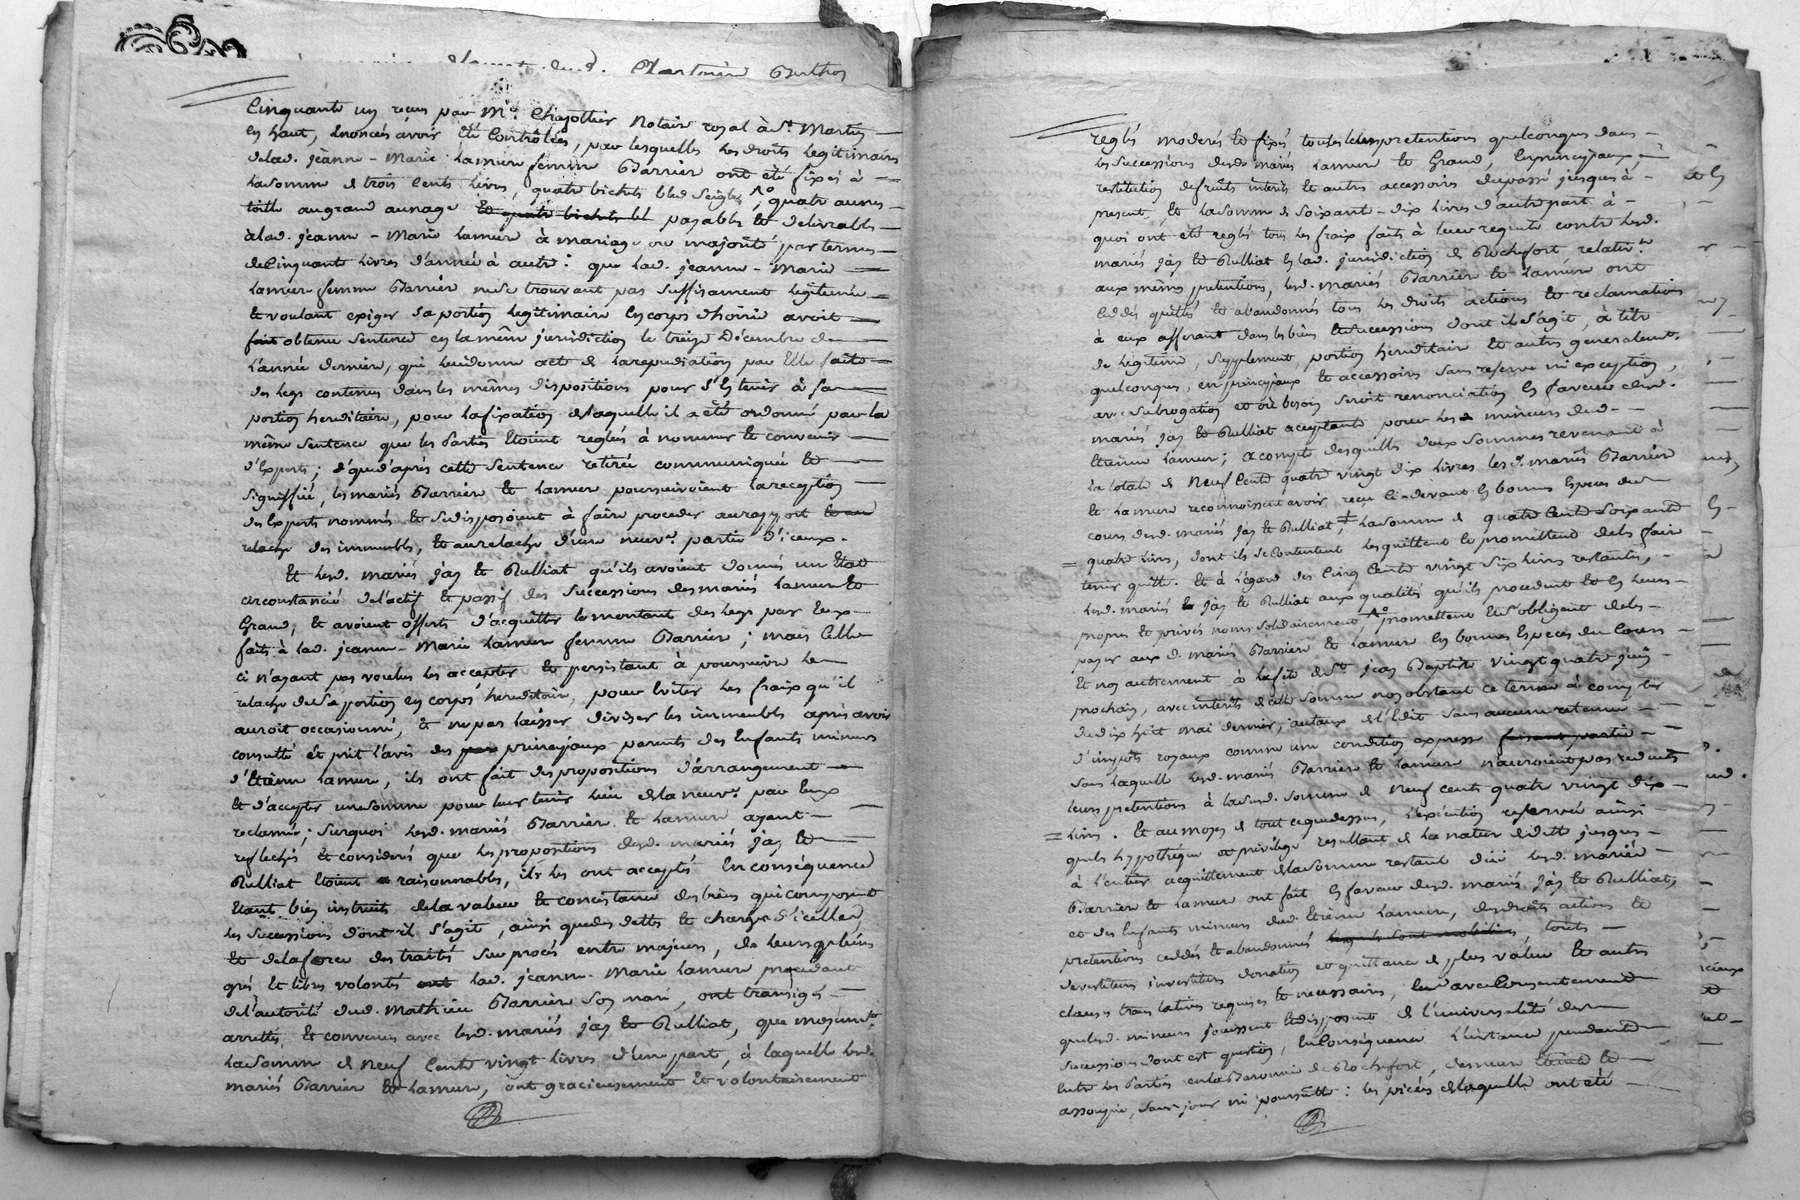 Cinquante un reçus par Me. Chazottier Notaire royal à St. Martin
en haut, Enoncés avoir été Contrôlés, par lesquelles les droits legitimaires
delad. jeanne-Marie Lamure femme Barrier ont été fixés à
la somme de trois Cents livres, quatre bichets bled Seigle, quatre aunes
toille au grand aunage et quatre bichets bl payables et delivrables
à lad. jeanne-Marie Lamure à mariage ou majorité par termes
de Cinquante livres d'année à autre: que lad. jeanne-Marie
Lamure femme Barrier ne se trouvant pas suffisament légitimée
et voulant exiger sa portion legitimaire en corps d'hoirie avoit
fait obtenu Sentence en la même juridiction le treize Décembre de
l'année dernière, qui lui donne acte de la repudiation par Elle faite
des legs contenus dans les mêmes dispositions pour s'en tenir à sa
portion hereditaire, pour la fixation de laquelle il a été ordonné par la
même Sentence que les Parties Etoient reglés à nommer et convenir
d'Experts; & que d'après cette Sentence retirée communiquée et
signiffiée, les mariés Barrier et Lamure poursuivoient la reception
des Experts nommés et se disposoient à faire proceder au rapport et au
relache des immeubles, et au relache d'une neuve. partie d'iceux.
Et lesd. mariés jas et Rulliat qu'ils avoient donnés un Etat
circonstancié de l'actif et passif des Successions des mariés Lamure et
Grand, et avoient offerts d'acquitter le montant des legs par Eux
faits à lad. jeanne-Marie Lamure femme Barrier; mais Celle
ci n'ayant pas voulus les accepter et persistant à poursuivre le
relache de sa portion en corps hereditaire, pour Eviter les fraix qu'il
auroit occasionné, et ne pas laisser diviser les immeubles après avoir
consulté et prit l'avis des par principaux parents des Enfants mineurs
d'Etienne Lamure, ils ont fait des propositions d'arrangement
et d'accepter une somme pour leur tenir lieu de la neuve. par Eux
reclamée; Surquoi lesd. mariés Barrier et Lamure ayant
reflechis et considerés que les propositions desd. mariés jas et
Rulliat Etoient raisonnables, ils les ont acceptés En conséquence
Etant bien instruits de la valeur et consistance des biens qui composent
les Successions dont il s'agit, ainsi que des dettes et charges d'icelles,
et de la force des traités sur procés entre majeurs, de leurs pleins
grés et libres volontés ont lad. jeanne-Marie Lamure procedant
de l'autorité dud. Mathieu Barrier son mari, ont transigés
arrettés, et convenus avec lesd. mariés jas et Rulliat, que moyent.
la Somme de neuf Cents vingt livres d'une part, à laquelle lesd.
mariés Barrier et Lamure, ont gracieusement et volontairement
reglés moderés et fixés toutes leurs pretentions quelconques dans
les successions desd. mariés Lamure et Grand, En principaux
restitution de fruits interets et autres accessoires du passé jusques à
present, et la somme de soixante-dix livres d'autre part à
quoi ont été reglés tous les fraix faits à leur requete contre lesd.
mariés jas et Rulliat en lad. juridiction de Rochefort relativt.
aux mêmes pretentions, lesd. mariés Barrier et Lamure ont
cedés quittés et abandonnés tous les droits actions et reclamations
à eux afferant dans les biens et successions dont il s'agit, à titre
de légitime, supplement, portion hereditaire et autres generalement
quelconques, en principaux et accessoires sans reserve ni exception,
avec subrogation et où besoin seroit renonciation en faveur desd.
mariés jas et Rulliat acceptants pour les mineurs dud.
Etienne Lamure; acompte desquelles deux sommes revenant à
la totale de Neuf Cents quatre vingt dix livres les d. mariés Barrier
et Lamure reconnoissent avoir reçu ci-devant en bonnes Especes du
cours desd. mariés jas et Rulliat, la somme de quatre Cents soixante
quatre livres, dont ils se contentent les quittent et promettent de les faire
tenir quitte. Et à l'égard des Cinq Cents vingt six livres restantes,
lesd. mariés jas et Rulliat aux qualités qu'ils procedent et en leurs
propres et privés noms solidairement, promettent et s'obligent de les
payer aux d. mariés Barrier et Lamure en bonnes Especes du Cours
et non autrement à la fête de St. jean Baptiste vingt quatre juin
prochain, avec interêts de cette somme nonobstant ce terme à compter
du dix huit mai dernier, au taux de l'Edit sans aucune retenue
d'impots royaux comme une condition expresse faisant partie
sans laquelle lesd. mariés Barrier et Lamure n'auroient pas reduits
leurs pretentions à la sud. somme de neuf cents quatre vingt dix
livres. Et au moyen de tout ce que dessus, l'execution reservée ainsi
que les hypothèque et privilége resultant de la nature de dette jusques
à l'entier acquittement de la somme restant düe lesd. mariés
Barrier et Lamure ont fait en faveur desd. mariés jas et Rulliat,
et des Enfants mineurs dud. Etienne Lamure, des droits actions et
pretentions cedés et abandonnés, toutes
devestitures investitures donation et quittance de plus value et autres
clauses translatives requises et necessaires, Ils Consentement
que lesd. mineurs jouissent et disposent de l'universalité des
successions dont est question, En Conséquence l'instance pendante
Entre les Parties en la Baronnie de Rochefort, demeure Eteinte et
assoupie, sans jour ni poursuitte: les pieces de laquelle ont été